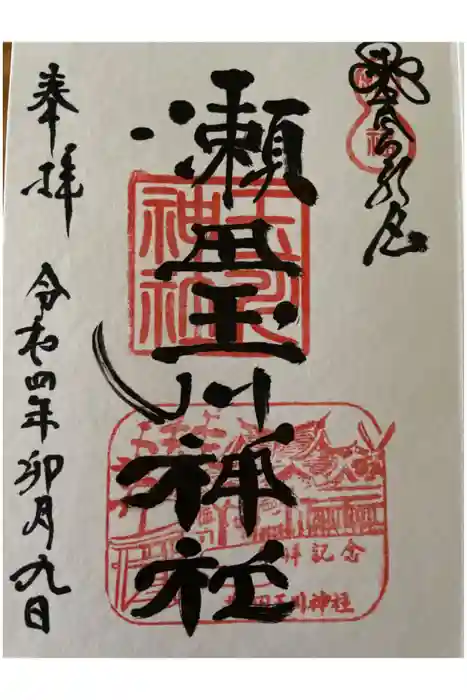 瀬田玉川神社
玉川
神社
拝記念
田玉川神社
奉拝 令和四年卯月九日